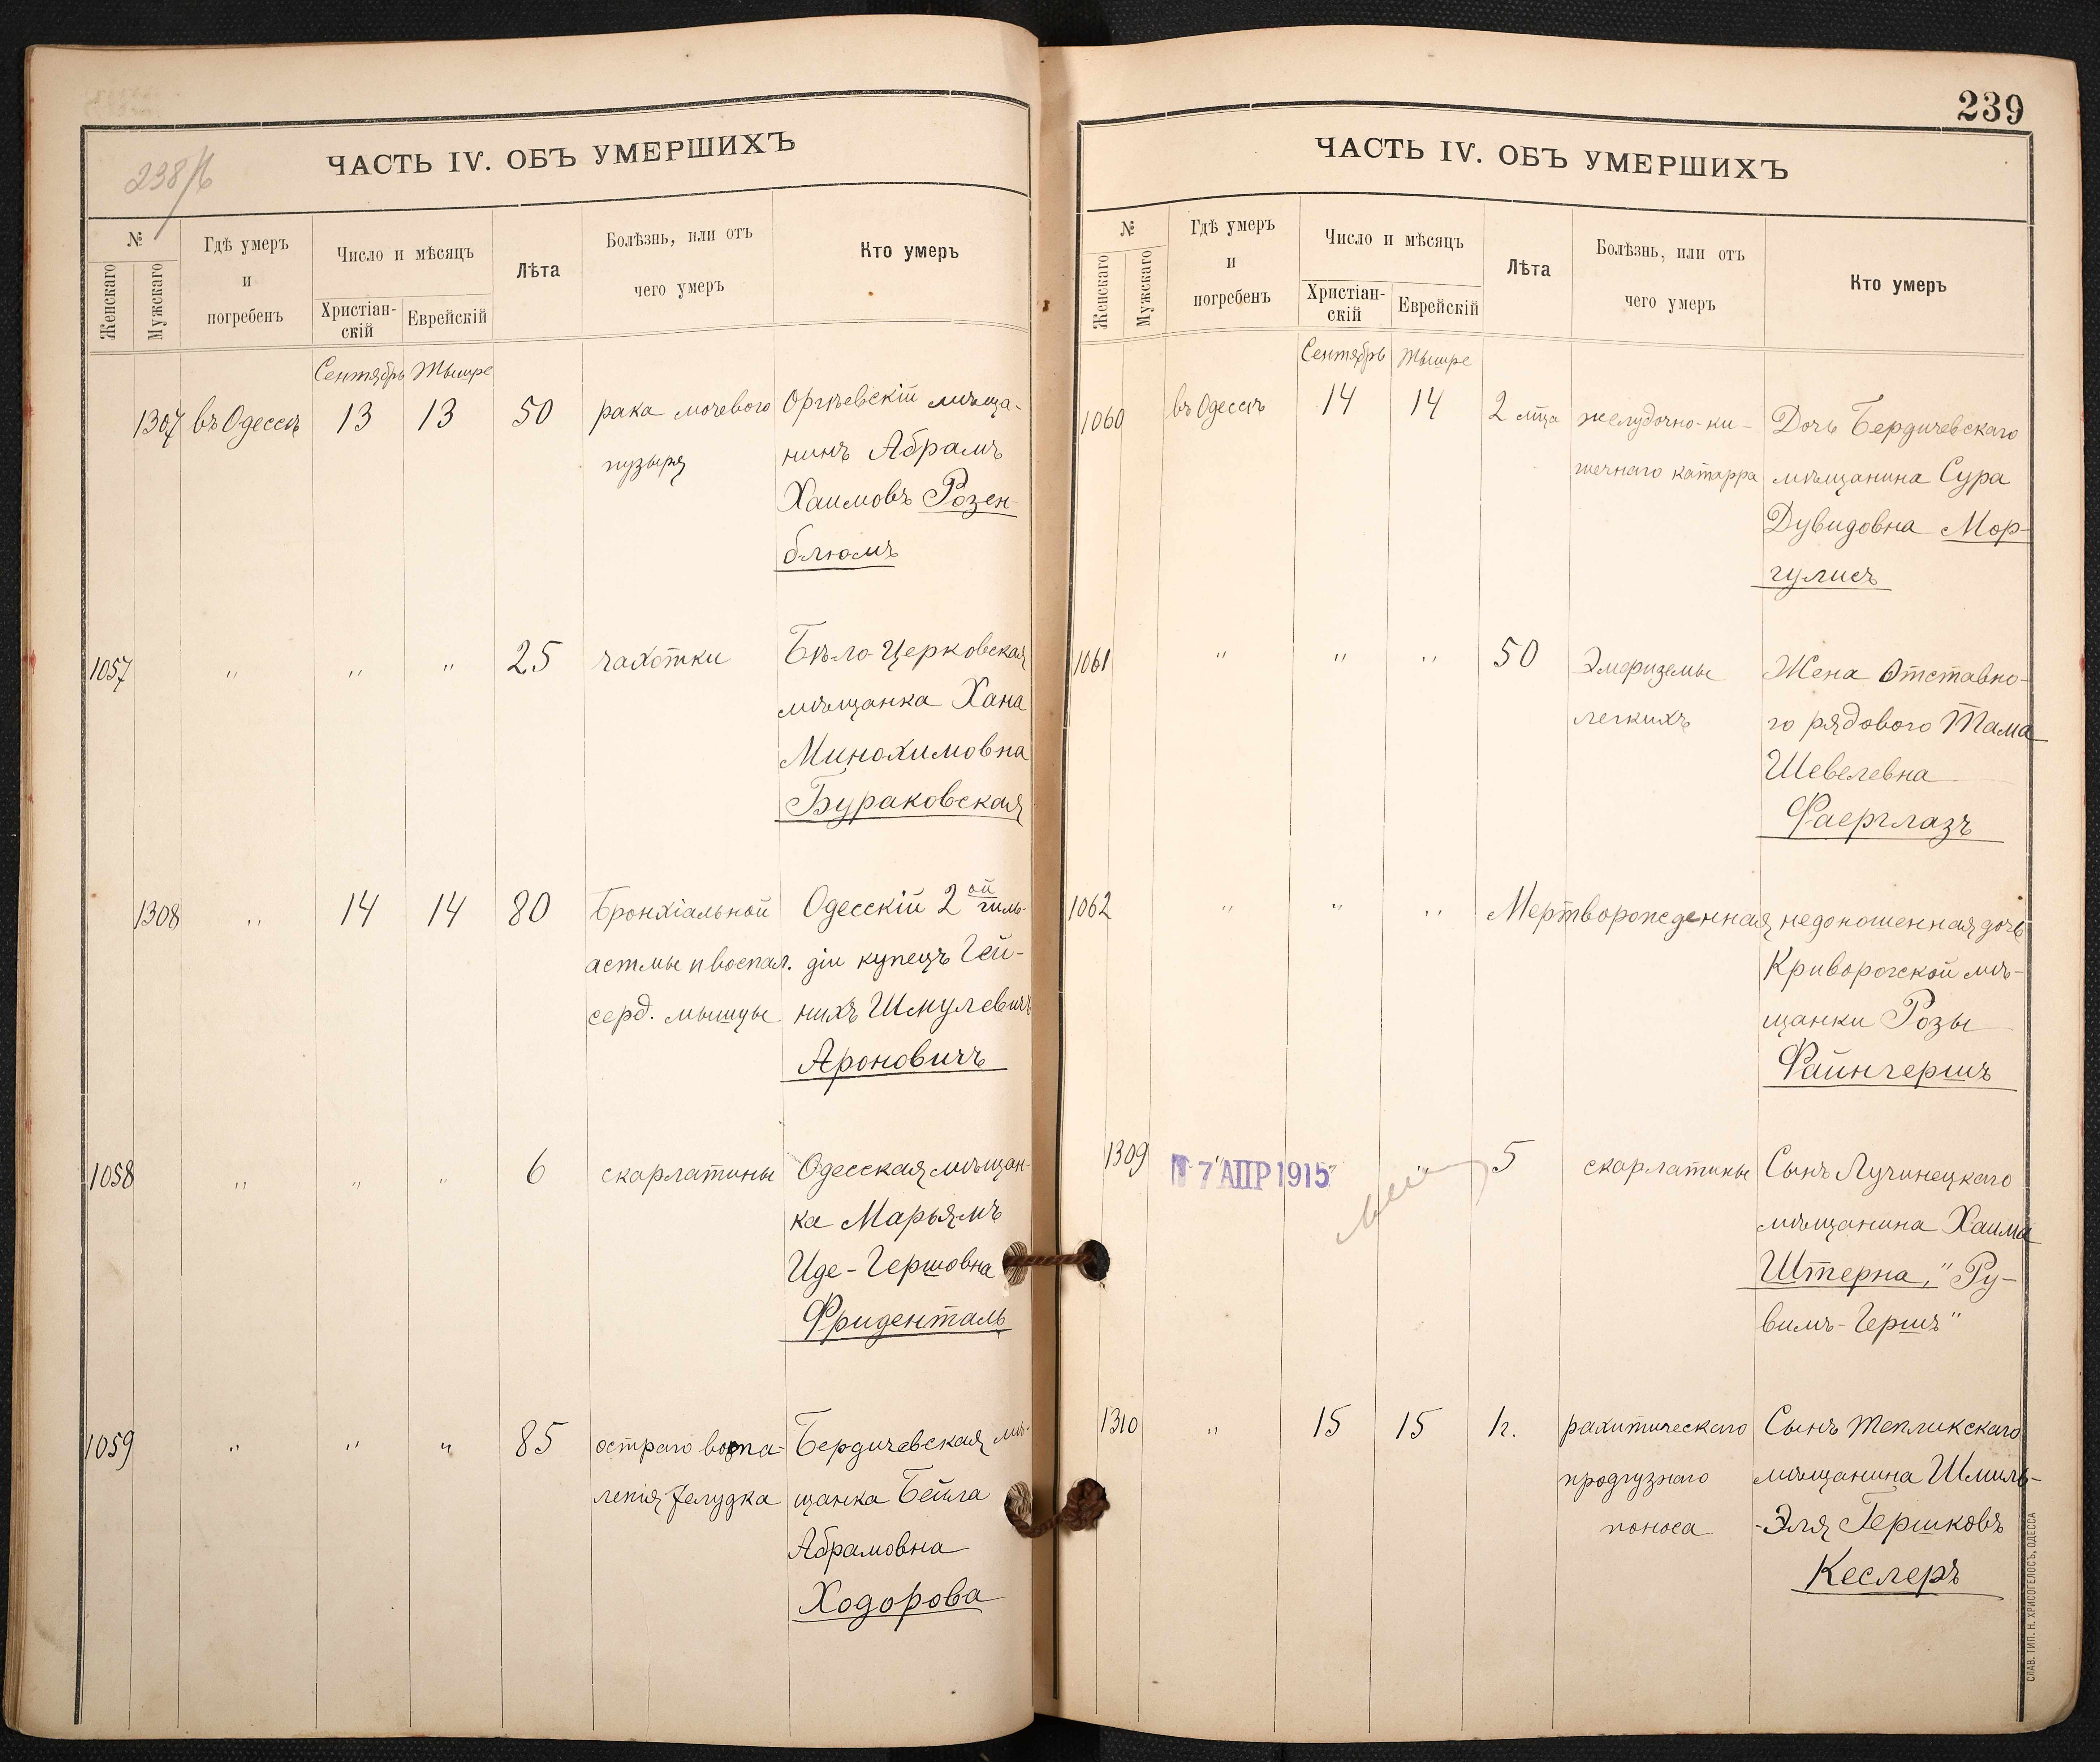 238/б
ЧАСТЬ IV. ОБЪ УМЕРШИХЪ
№
Женскаго
Мужскаго
Гдѣ умеръ
и
погребенъ
Число и мѣсяцъ
Христіан-
скій
Еврейскій
Лѣта
Болѣзнь, или отъ
чего умеръ
Кто умеръ
Сентябрь Тышре
1307 въ Одессѣ 13 13 50 рака мочевого Оргѣевскій мѣща-
пузыря нинъ Абрамъ
Хаимовъ Розен-
блюмъ
1057 " " " 25 чахотки Бѣло-Церковская
мѣщанка Хана
Минохимовна
Бураковская
1308 " 14 14 80 Бронхіальной Одесскій 2ой гиль-
астмы и воспал. діи купецъ Гей-
серд. мышцы нихъ Шмулевичъ
Ароновичъ
1058 " " " 6 скарлатины Одесская мѣщан-
ка Марьямъ
Иде-Гершовна
Фриденталь
1059 " " " 85 остраго воспа- Бердичевская мѣ-
ленія желудка щанка Бейла
Абрамовна
Ходорова
239
ЧАСТЬ IV. ОБЪ УМЕРШИХЪ
№
Женскаго
Мужскаго
Гдѣ умеръ
и
погребенъ
Число и мѣсяцъ
Христіан-
скій
Еврейскій
Лѣта
Болѣзнь, или отъ
чего умеръ
Кто умеръ
Сентябрь Тышре
1060 въ Одессѣ 14 14 2 мца желудочно-ки- Дочь Бердичевскаго
шечнаго катарра мѣщанина Сура
Дувидовна Мор-
гулисъ
1061 " " " 50 Эмфиземы Жена Отставно-
легкихъ го рядового Тама
Шевелевна
Фаерглазъ
1062 " " " Мертворожденная недоношенная дочь
Криворогской мѣ-
щанки Розы
Файнгершъ
1309 " " " 5 скарлатины Сынъ Лучинецкаго
7 АПР 1915
мѣщанина Хаима
Штерна, "Ру-
вимъ-Гершъ"
1310 " 15 15 1 г. рахитическаго Сынъ Тепликскаго
продгузнаго мѣщанина Шмиль-
поноса -Эля Гершковъ
Кеслеръ
СЛАВ. ТИП. Н. ХРИСОГЕЛОСЪ, ОДЕССА